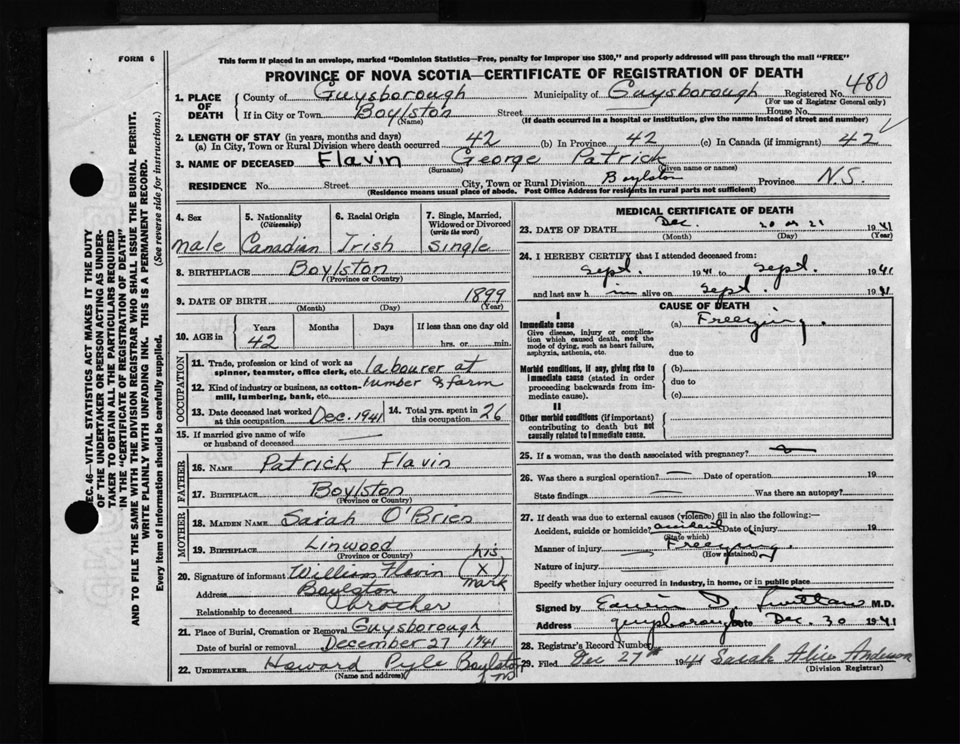 FORM 6
This form if placed in an envelope, marked "Dominion Statistics—Free, penalty for improper use $300," and properly addressed will pass through the mail "FREE"
PROVINCE OF NOVA SCOTIA—CERTIFICATE OF REGISTRATION OF DEATH
SEC. 46—VITAL STATISTICS ACT MAKES IT THE DUTY
OF THE UNDERTAKER OR PERSON ACTING AS UNDER-
TAKER TO OBTAIN ALL THE PARTICULARS REQUIRED
IN THE "CERTIFICATE OF REGISTRATION OF DEATH"
AND TO FILE THE SAME WITH THE DIVISION REGISTRAR WHO SHALL ISSUE THE BURIAL PERMIT.
WRITE PLAINLY WITH UNFADING INK. THIS IS A PERMANENT RECORD.
Every item of information should be carefully supplied. (See reverse side for instructions.)
1. PLACE OF DEATH County of Guysborough Municipality of Guysborough Registered No. 480
(For use of Registrar General only)
If in City or Town Boylston Street House No.
(Name) (If death occurred in a hospital or institution, give the name instead of street and number)
2. LENGTH OF STAY (in years, months and days)
(a) In City, Town or Rural Division where death occurred 42 (b) In Province 42 (c) In Canada (if immigrant) 42
3. NAME OF DECEASED Flavin George Patrick
(Surname) (Given name or names)
RESIDENCE No. Street City, Town or Rural Division Boylston Province N.S.
(Residence means usual place of abode. Post Office Address for residents in rural parts not sufficient)
4. Sex male
5. Nationality (Citizenship) Canadian
6. Racial Origin Irish
7. Single, Married, Widowed or Divorced (write the word) Single
8. BIRTHPLACE Boylston
(Province or Country)
9. DATE OF BIRTH 1899
(Month) (Day) (Year)
10. AGE in Years 42 Months Days If less than one day old hrs. or min.
OCCUPATION
11. Trade, profession or kind of work as spinner, teamster, office clerk, etc. labourer at
12. Kind of industry or business, as cotton-mill, lumbering, bank, etc. lumber & farm
13. Date deceased last worked at this occupation Dec. 1941
14. Total yrs. spent in this occupation 26
15. If married give name of wife or husband of deceased
FATHER
16. NAME Patrick Flavin
17. BIRTHPLACE Boylston
(Province or Country)
MOTHER
18. MAIDEN NAME Sarah O'Brien
19. BIRTHPLACE Linwood
(Province or Country)
20. Signature of informant William Flavin his (X) mark
Address Boylston
Relationship to deceased brother
21. Place of Burial, Cremation or Removal Guysborough
Date of burial or removal December 27 1941
22. UNDERTAKER Howard Pyle Boylston
(Name and address)
MEDICAL CERTIFICATE OF DEATH
23. DATE OF DEATH Dec. 20 or 21 1941
(Month) (Day) (Year)
24. I HEREBY CERTIFY that I attended deceased from:
Sept. 1941 to Sept. 1941
and last saw him alive on Sept. 1941
CAUSE OF DEATH
I
Immediate cause
Give disease, injury or complication which caused death, not the mode of dying, such as heart failure, asphyxia, asthenia, etc.
(a) Freezing.
due to
Morbid conditions, if any, giving rise to immediate cause (stated in order proceeding backwards from immediate cause).
(b)
due to
(c)
II
Other morbid conditions (if important) contributing to death but not causally related to immediate cause.
25. If a woman, was the death associated with pregnancy?
26. Was there a surgical operation? Date of operation 19
State findings Was there an autopsy?
27. If death was due to external causes (violence) fill in also the following:—
Accident, suicide or homicide? accident Date of injury 19
(State which)
Manner of injury Freezing.
(How sustained)
Nature of injury
Specify whether injury occurred in industry, in home, or in public place
Signed by Edwin D. M.D.
Address Guysborough Date Dec. 30 1941
28. Registrar's Record Number
29. Filed Dec 27th 1941 Sarah Alice Anderson
(Division Registrar)